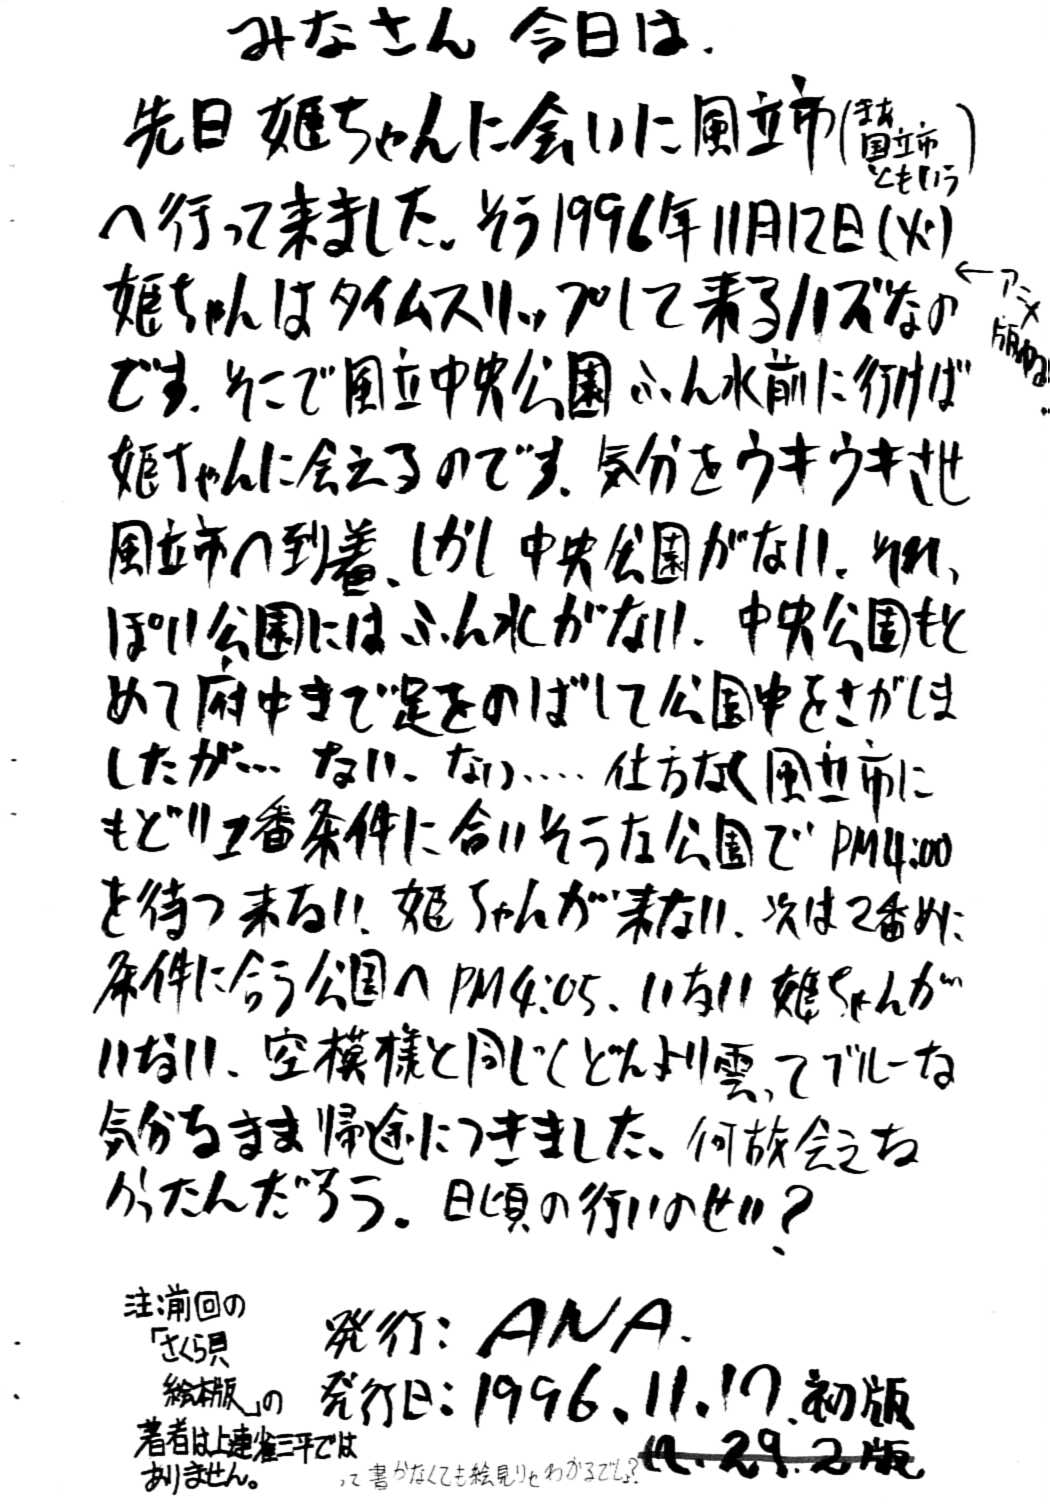 みなさん 今日は.
先日 姫ちゃんに会いに風立市(まあ国立市ともいう)
へ行って来ました。そう1996年11月12日(火)
←アニメ版ねる!!
姫ちゃんはタイムスリップして来るハズなの
です. そこで風立中央公園 ふん水前に行けば
姫ちゃんに会えるのです. 気分をウキウキさせ
風立市へ到着、しかし 中央公園がない. それっ
ぽい公園にはふん水がない. 中央公園もと
めて府中まで足をのばして公園中をさがしま
したが… ない、ない‥‥ 仕方なく風立市に
もどり1番条件に合いそうな公園で PM4:00
を待つ 来ない. 姫ちゃんが来ない. 次は2番めに
条件に合う公園へ PM4:05、いない 姫ちゃんが
いない. 空模様と同じくどんより雲ってブルーな
気分なまま帰途につきました、何故会えな
かったんだろう. 日頃の行いのせい?
注:前回の
「さくら貝
絵本版」の
著者は上連雀三平では
ありません。
発行: ANA.
発行日: 1996.11.17.初版
11.29.2版
って書かなくても絵見りゃわかるでしょ?